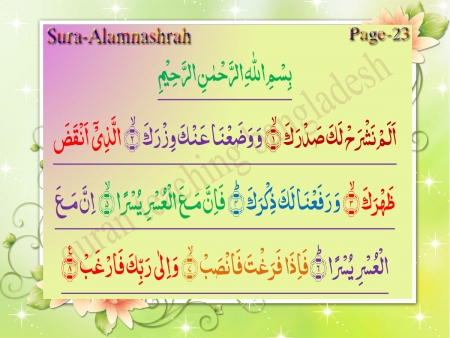 Sura-Alamnashrah
Page-23
بِسْمِ اللهِ الرَّحْمٰنِ الرَّحِيْمِ
اَلَمْ نَشْرَحْ لَكَ صَدْرَكَ ﴿١﴾ وَوَضَعْنَا عَنْكَ وِزْرَكَ ﴿٢﴾ الَّذِيْٓ اَنْقَضَ
ظَهْرَكَ ﴿٣﴾ وَرَفَعْنَا لَكَ ذِكْرَكَ ﴿٤﴾ فَاِنَّ مَعَ الْعُسْرِ يُسْرًا ﴿٥﴾ اِنَّ مَعَ
الْعُسْرِ يُسْرًا ﴿٦﴾ فَاِذَا فَرَغْتَ فَانْصَبْ ﴿٧﴾ وَاِلٰى رَبِّكَ فَارْغَبْ ﴿٨﴾
quran teaching bangladesh